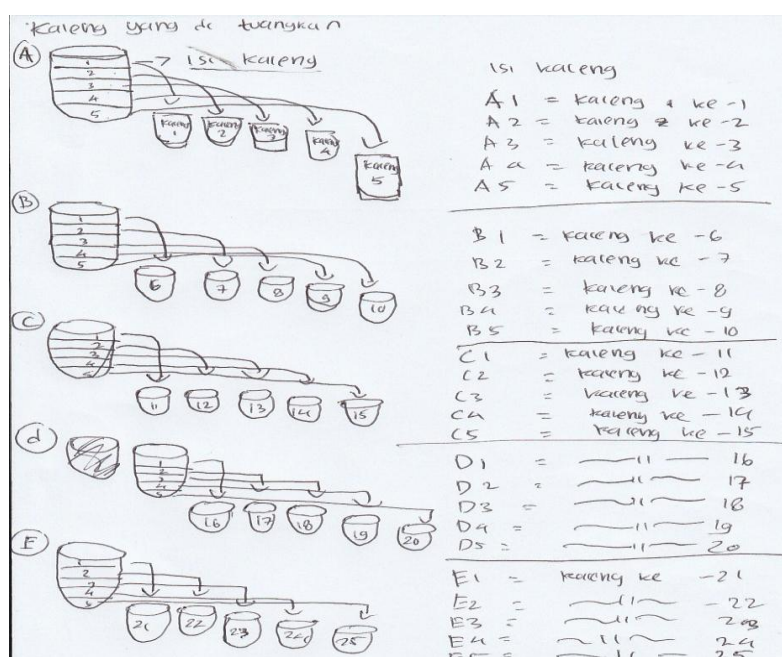 Kaleng yang di tuangkan
A
Isi kaleng
1
2
3
4
5
kaleng 1
kaleng 2
kaleng 3
kaleng 4
kaleng 5
B
1
2
3
4
5
6
7
8
9
10
C
1
2
3
4
5
11
12
13
14
15
d
1
2
3
4
5
16
17
18
19
20
E
1
2
3
4
5
21
22
23
24
25
Isi kaleng
A1 = kaleng ke -1
A2 = kaleng ke -2
A3 = kaleng ke -3
A4 = kaleng ke -4
A5 = kaleng ke -5
B1 = kaleng ke -6
B2 = kaleng ke -7
B3 = kaleng ke -8
B4 = kaleng ke -9
B5 = kaleng ke -10
C1 = kaleng ke -11
C2 = kaleng ke -12
C3 = kaleng ke -13
C4 = kaleng ke -14
C5 = kaleng ke -15
D1 = —〃— 16
D2 = —〃— 17
D3 = —〃— 18
D4 = —〃— 19
D5 = —〃— 20
E1 = kaleng ke -21
E2 = —〃— -22
E3 = —〃— 23
E4 = —〃— 24
E5 = —〃— 25